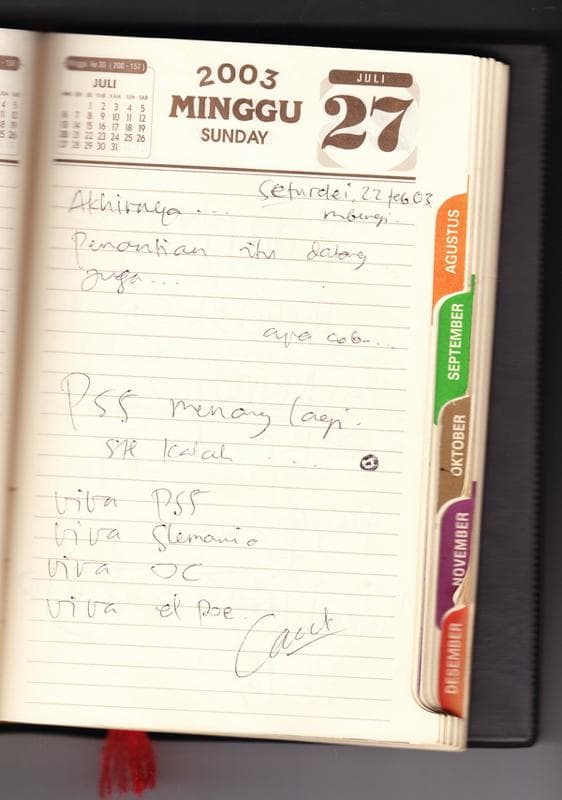 Minggu ke 30 ( 208 - 157 )
JULI
1 2 3 4 5
6 7 8 9 10 11 12
13 14 15 16 17 18 19
20 21 22 23 24 25 26
27 28 29 30 31
2003
MINGGU
SUNDAY
JULI
27
Seturdei, 22 Feb 03
mbengi.
Akhirnya ...
Penantian itu datang
juga ...
apa cob...
PSS menang lagi.
kalah ....
viva PSS
viva Slemania
viva OC
viva el Poe.
AGUSTUS
SEPTEMBER
OKTOBER
NOVEMBER
DESEMBER